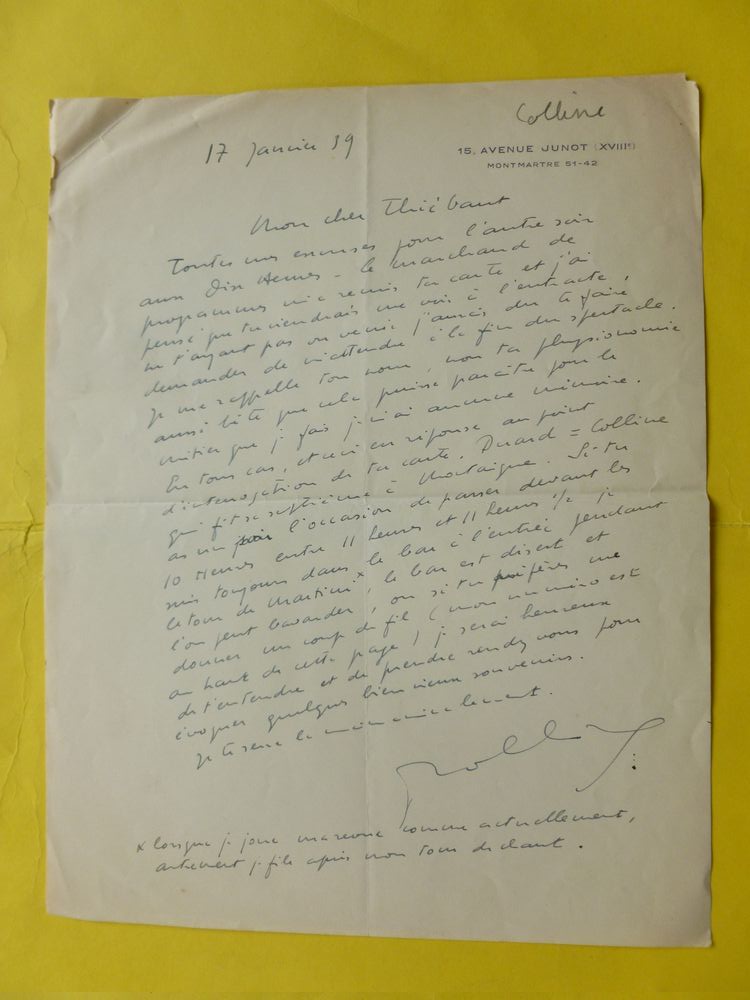 Colline
17 Janvier 39
15, AVENUE JUNOT (XVIIIe)
MONTMARTRE 51-42
Mon cher Thiébaut
Toutes mes excuses pour l'autre soir
aux Dix Heures - le marchand de
programmes m'a remis ta carte et j'ai
pensé que tu viendrais me voir à l'entracte,
ne t'ayant pas vu venir j'aurais dû te faire
demander de m'attendre à la fin du spectacle.
Je me rappelle ton nom, non ta physionomie
aussi bête que cela puisse paraître pour le
métier que je fais je n'ai aucune mémoire.
En tous cas, et ceci en réponse au point
d'interrogation de ta carte. Duard = Colline
qui fit sa septième à Montaigne. Si tu
as un soir l'occasion de passer devant les
10 Heures entre 11 heures et 11 heures 1/2 je
suis toujours dans le bar à l'entrée pendant
le tour de Martini x, le bar est discret et
l'on peut bavarder, ou si tu préfères me
donner un coup de fil (mon numéro est
au haut de cette page) je serai heureux
de t'entendre et de prendre rendez vous pour
évoquer quelques bien vieux souvenirs.
Je te serre la main amicalement.
Colline
x lorsque je joue ma revue comme actuellement,
autrement je file après mon tour de chant.